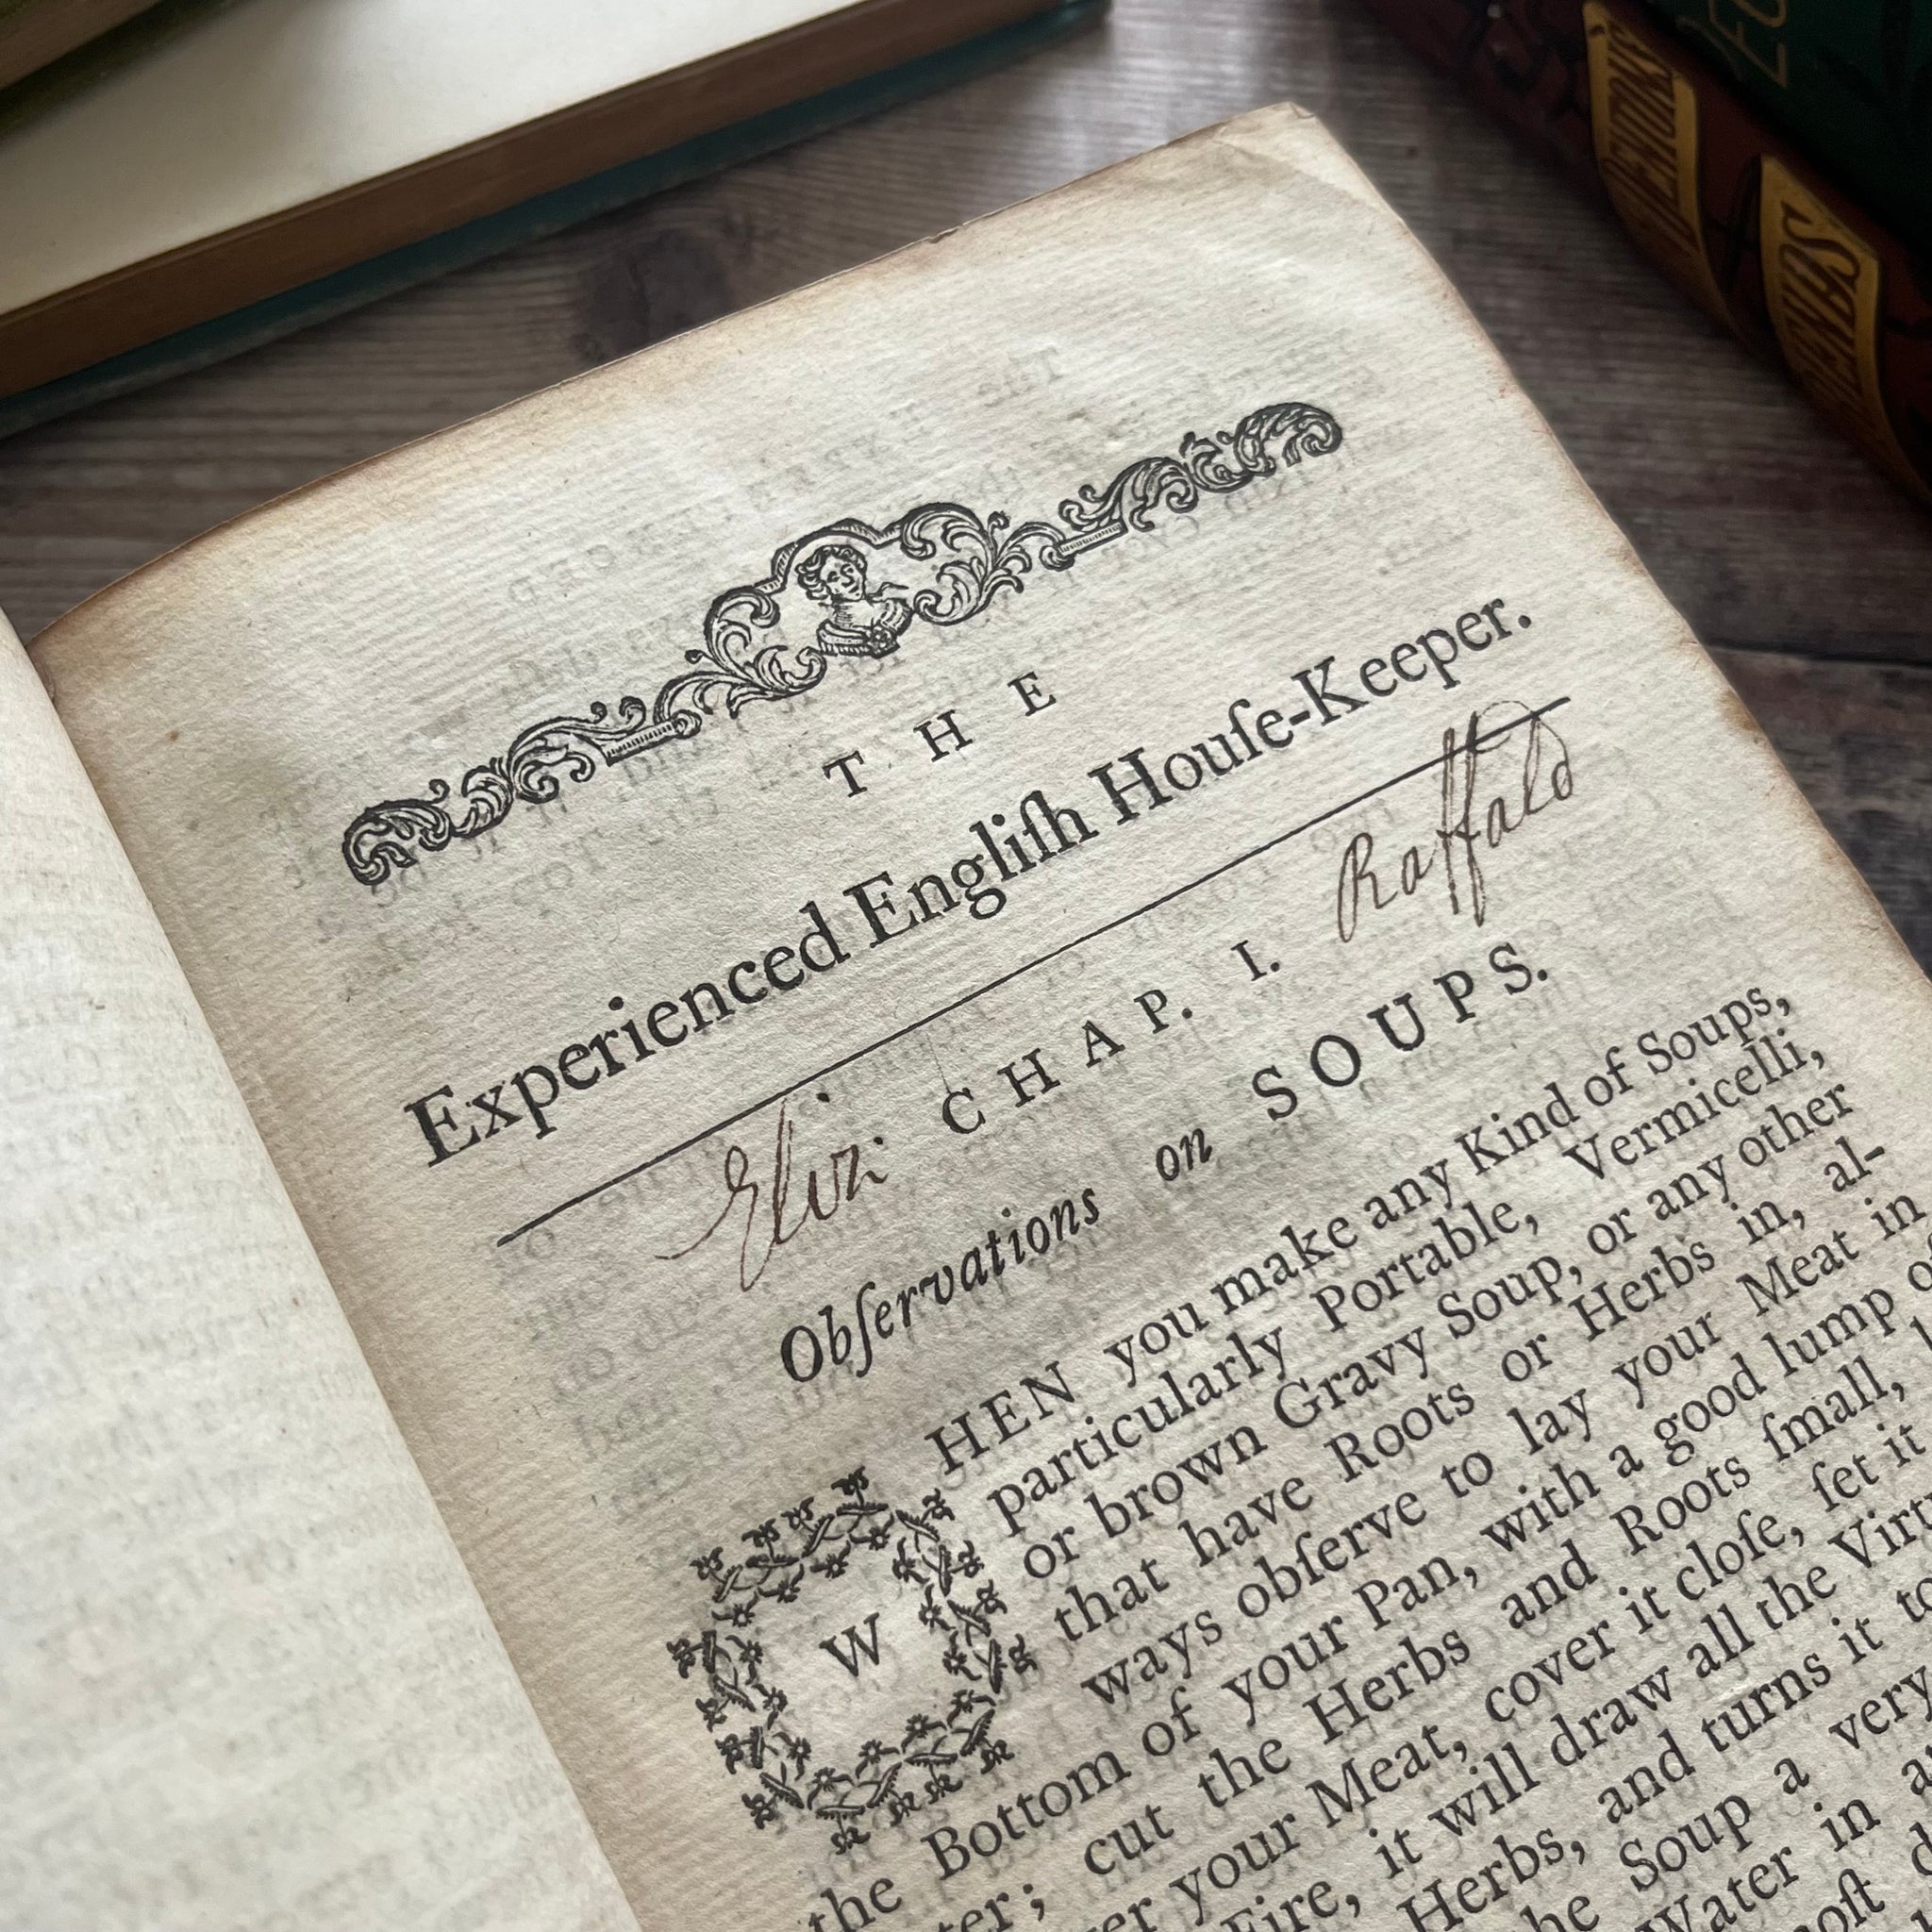 THE
Experienced Engliſh Houſe-Keeper.
CHAP. I.
Eliz: Raffald
Obſervations on SOUPS.
WHEN you make any Kind of Soups,
particularly Portable, Vermicelli,
or brown Gravy Soup, or any other
that have Roots or Herbs in, al-
ways obſerve to lay your Meat in
the Bottom of your Pan, with a good lump
cut the Herbs and Roots ſmall,
your Meat, cover it cloſe, ſet it
Fire, it will draw all the
Herbs, and turns it
Soup a very
Water in